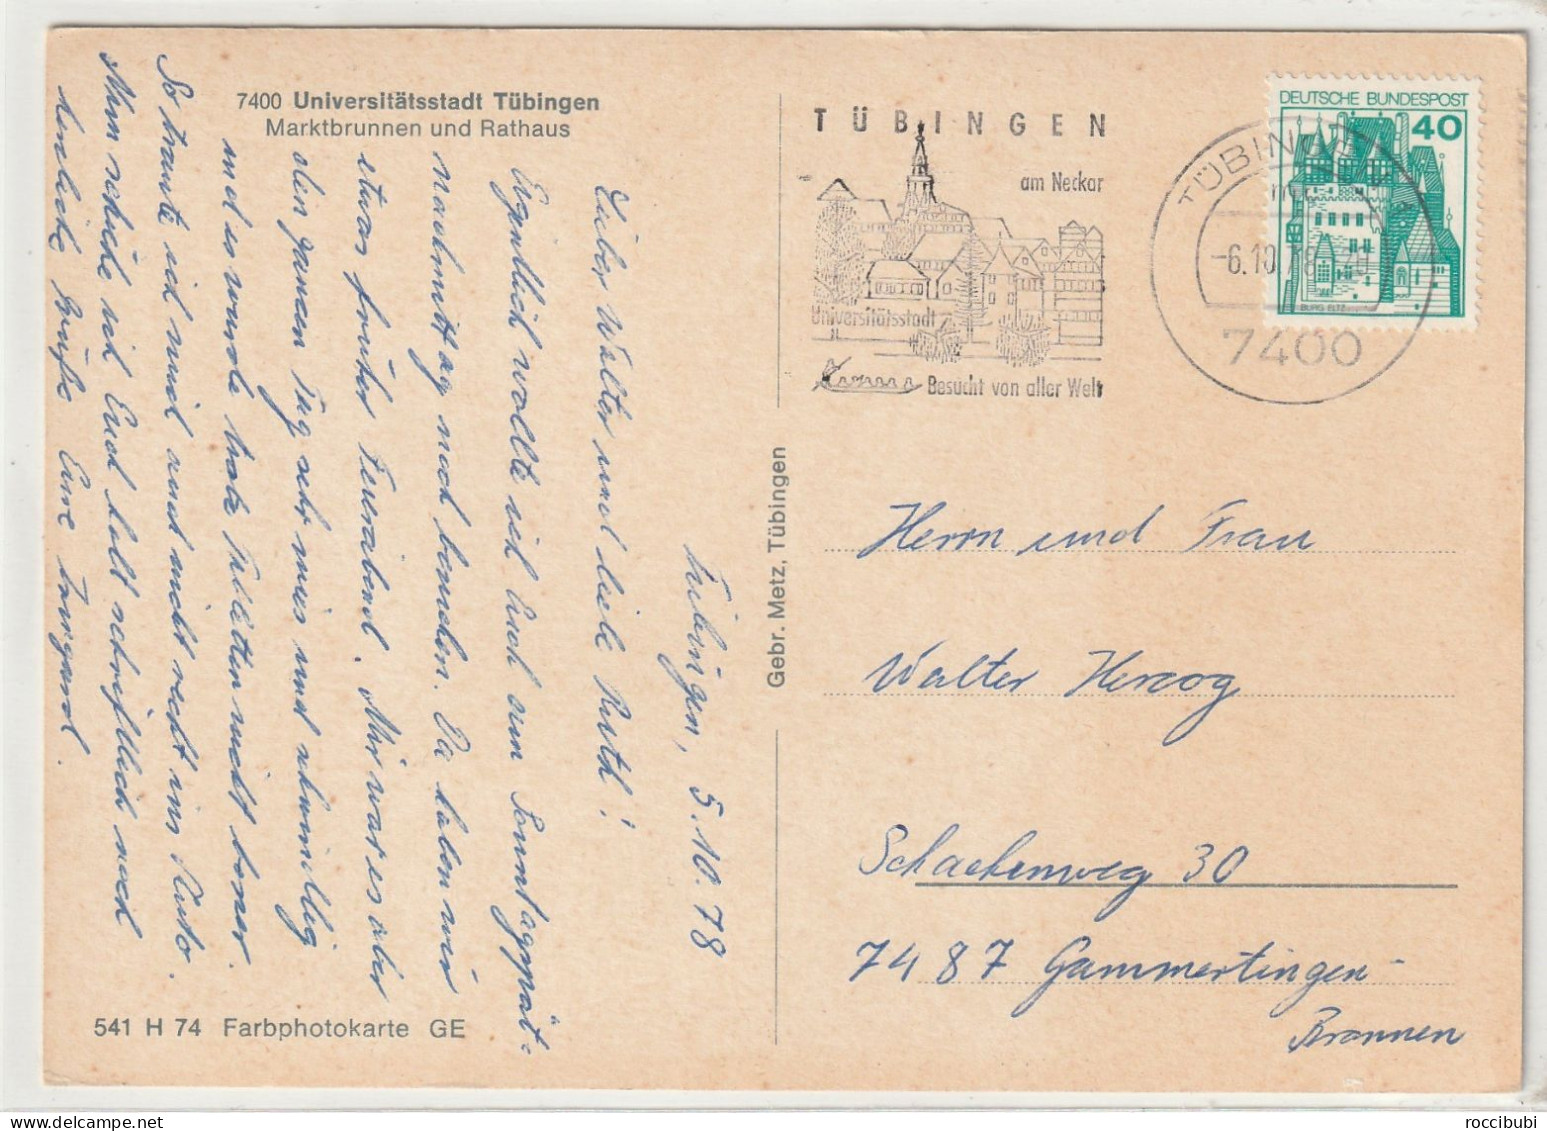 7400 Universitätsstadt Tübingen
Marktbrunnen und Rathaus
Tübingen, 5.10.78
Lieber Walter und liebe Ruth!
Eigentlich wollte ich Euch am Sonntagspät-
nachmittag noch besuchen. Da haben wir
etwas früher Feierabend. Mir war es aber
den ganzen Tag sehr mies und schwindlig
und es wurde trotz Tabletten nicht besser.
So traute ich mich auch nicht recht ins Auto.
Nun schicke ich Euch halt schriftlich noch
herzliche Grüße Eure Irmgard.
541 H 74 Farbphotokarte GE
Gebr. Metz, Tübingen
TÜBINGEN
am Neckar
Universitätsstadt
Besucht von aller Welt
TÜBINGEN
-6.10.78
7400
DEUTSCHE BUNDESPOST
40
BURG ELTZ
Herrn und Frau
Walter Herzog
Schachenweg 30
7487 Gammertingen-
Bronnen
roccibubi